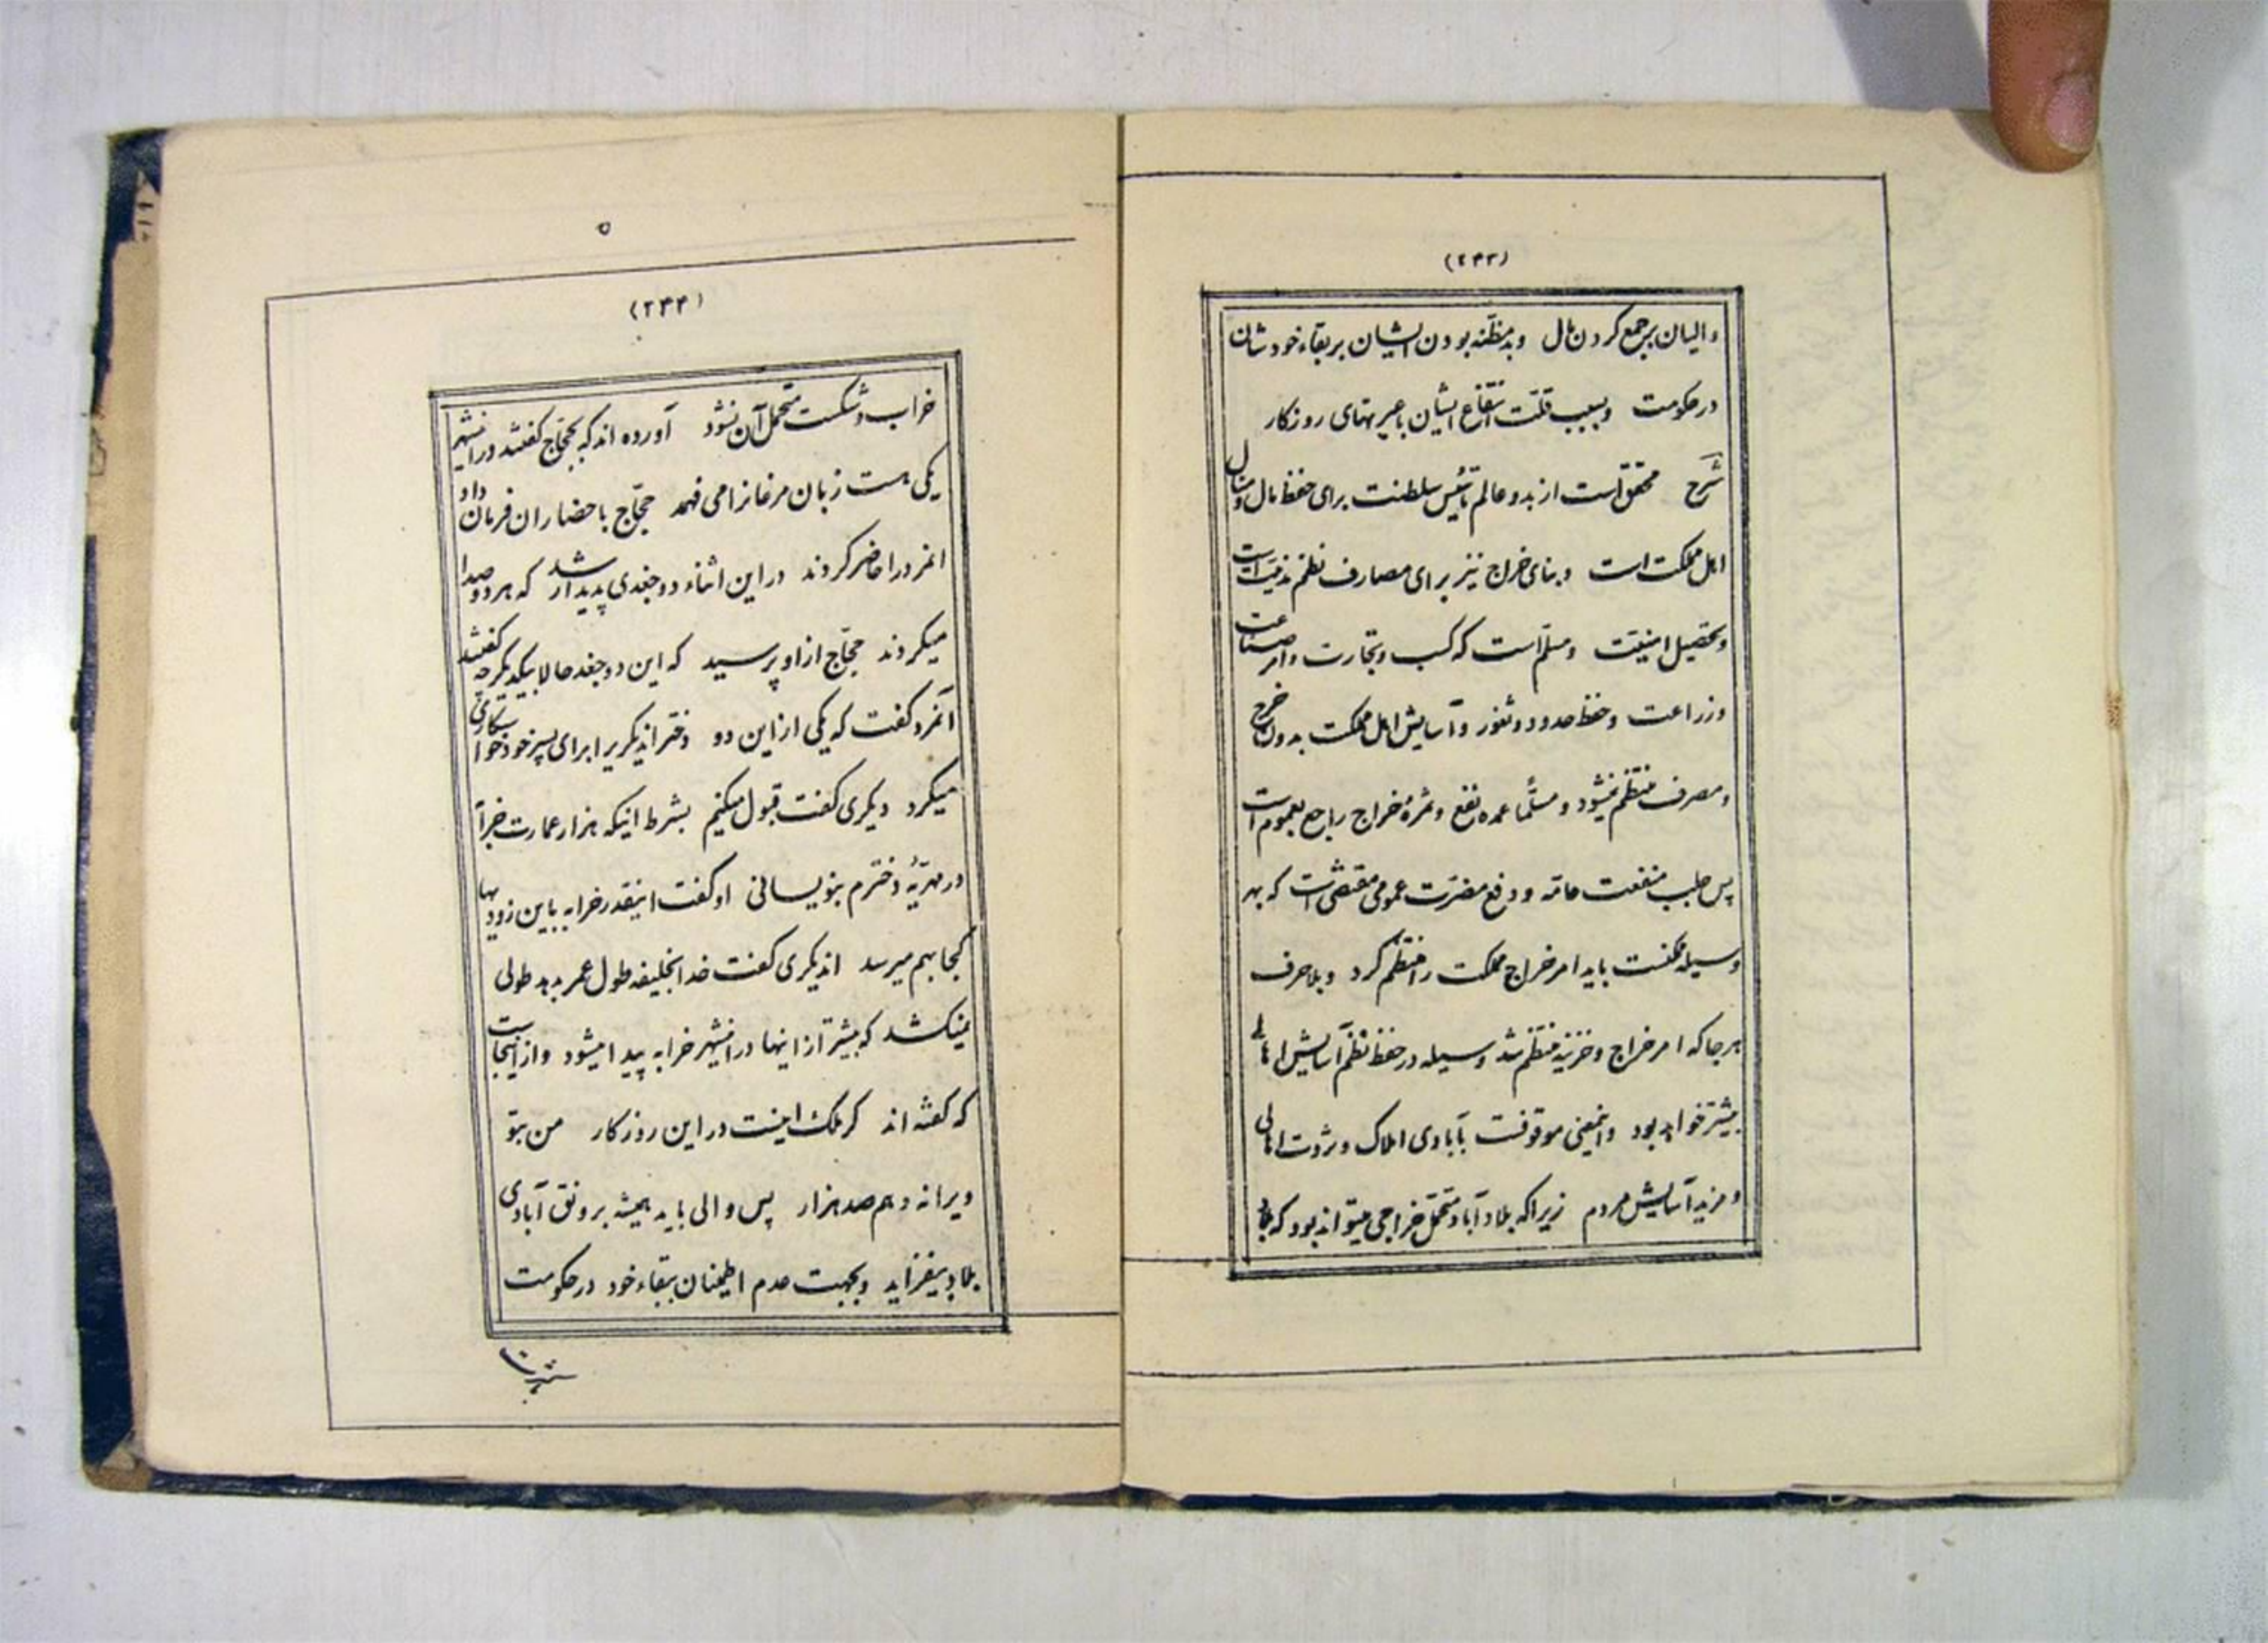 (۲۴۳)
والیان برجمع کردن مال و بدمظنه بودن ایشان بر بقاء خودشان
در حکومت و بسبب قلت انتفاع ایشان باعبرتهای روزکار
شرح محقق است از بدو عالم تاسیس سلطنت برای حفظ مال و منال
اهل مملکت است و بنای خراج نیز برای مصارف نظم مدنیت است
و تحصیل امنیت و مسلم است که کسب و تجارت و امر صناعت
و زراعت و حفظ حدود و ثغور و آسایش اهل مملکت بدون خرج
و مصرف منتظم نمیشود و مسلما عمده نفع و ثمرهٔ خراج راجع بعموم است
پس جلب منفعت عامه و دفع مضرت عمومی مقتضی است که بهر
وسیله ممکنست باید امر خراج مملکت را منتظم کرد و بلاحرف
هرجا که امر خراج و خزینه منتظم شد وسیله در حفظ نظم آسایش اهالی
بیشتر خواهد بود و اینمعنی موقوفست بآبادی املاک و ثروت اهالی
و مزید آسایش مردم زیرا که بلاد آباد متحمل خراجی میتواند بود که بلاد
(۲۴۴)
خراب و شکست متحمل آن نشود آورده اند که بحجاج کفتند در اینشهر
یکی هست زبان مرغانرا می فهمد حجاج باحضار ان فرمان داد
انمرد را حاضر کردند در این اثناء دو جغدی پدیدار شد که هر دو صدا
میکردند حجاج از او پرسید که این دو جغد حالا بیکدیکر چه کفتند
آنمرد کفت که یکی از این دو دختر اندیکریرا برای پسر خود خواستکاری
میکرد دیکری کفت قبول میکنم بشرط اینکه هزار عمارت خرابه
در مهریهٔ دخترم بنویسانی او کفت اینقدر خرابه باین زودیها
کجا بهم میرسد اندیکری کفت خدا بخلیفه طول عمر بدهد طولی
نمیکشد که بیشتر از اینها در اینشهر خرابه پیدا میشود و از اینجاست
که کفته اند کر ملک اینست در این روزکار من بتو
ویرانه دهم صد هزار پس والی باید همیشه بر رونق آبادی
بلاد بیفزاید و بجهت عدم اطمینان ببقاء خود در حکومت